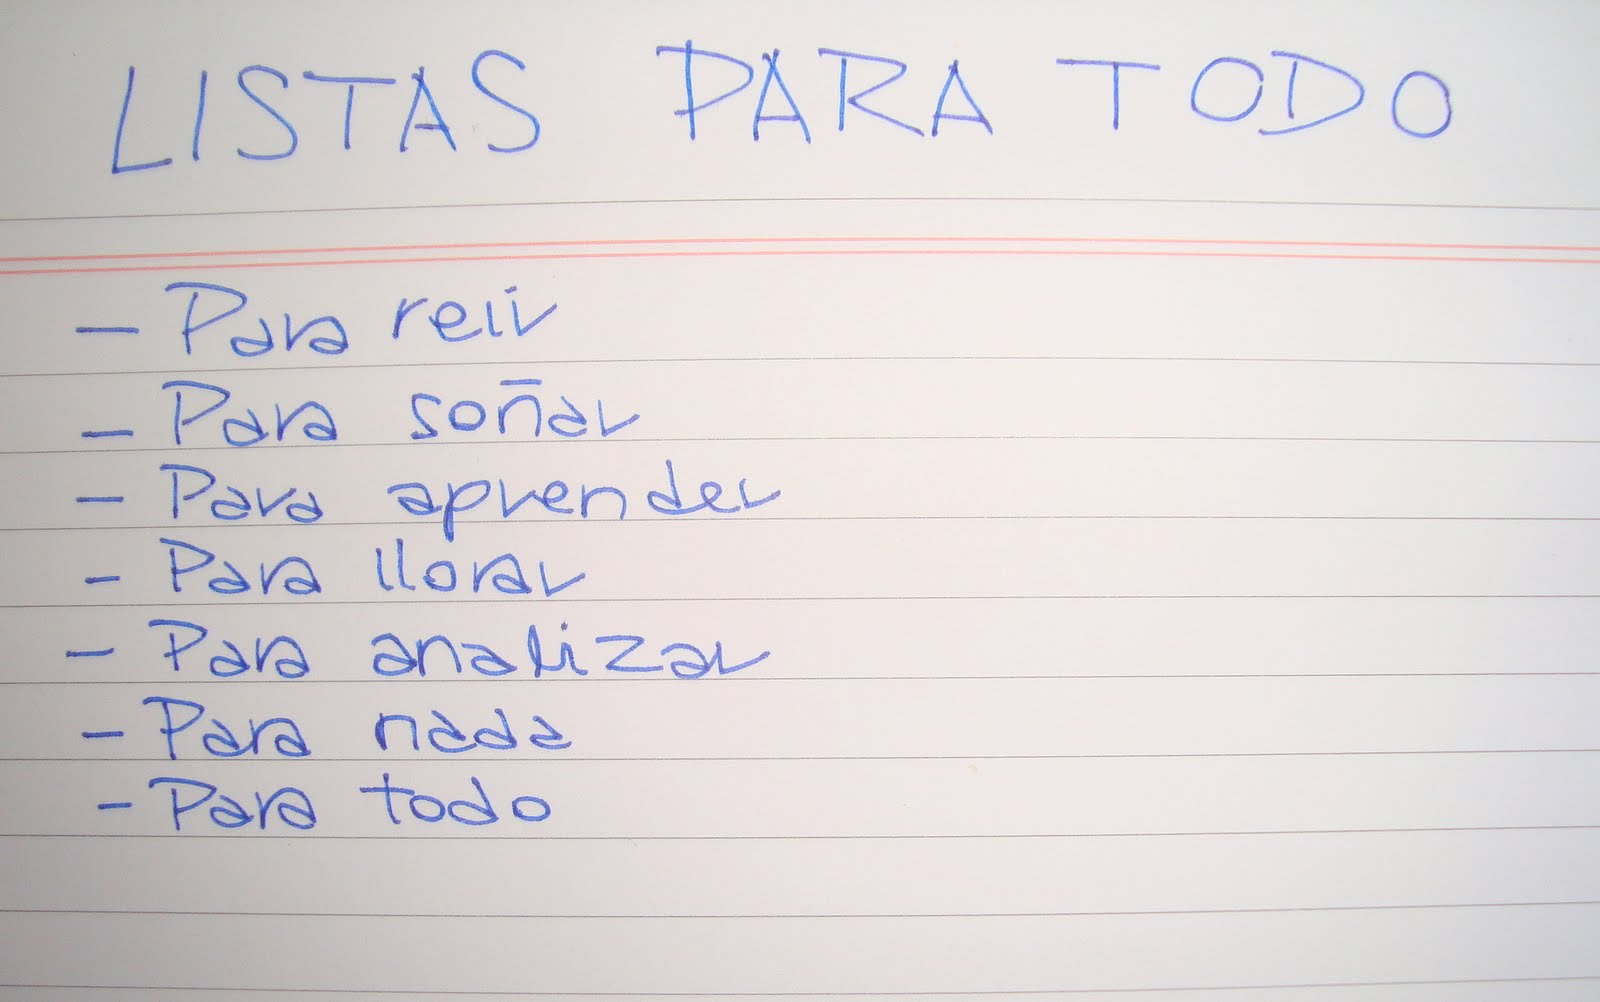 LISTAS PARA TODO
- Para reir
- Para soñar
- Para aprender
- Para llorar
- Para analizar
- Para nada
- Para todo